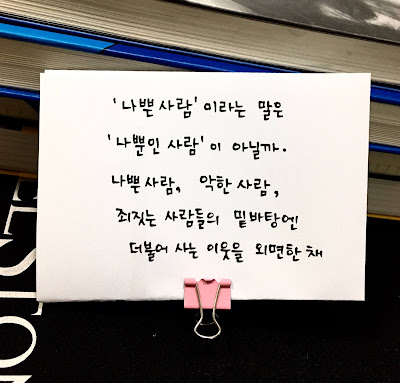 '나쁜사람'이라는 말은
'나뿐인 사람'이 아닐까.
나쁜사람, 악한사람,
죄짓는 사람들의 밑바탕엔
더불어 사는 이웃을 외면한 채
ELSTON